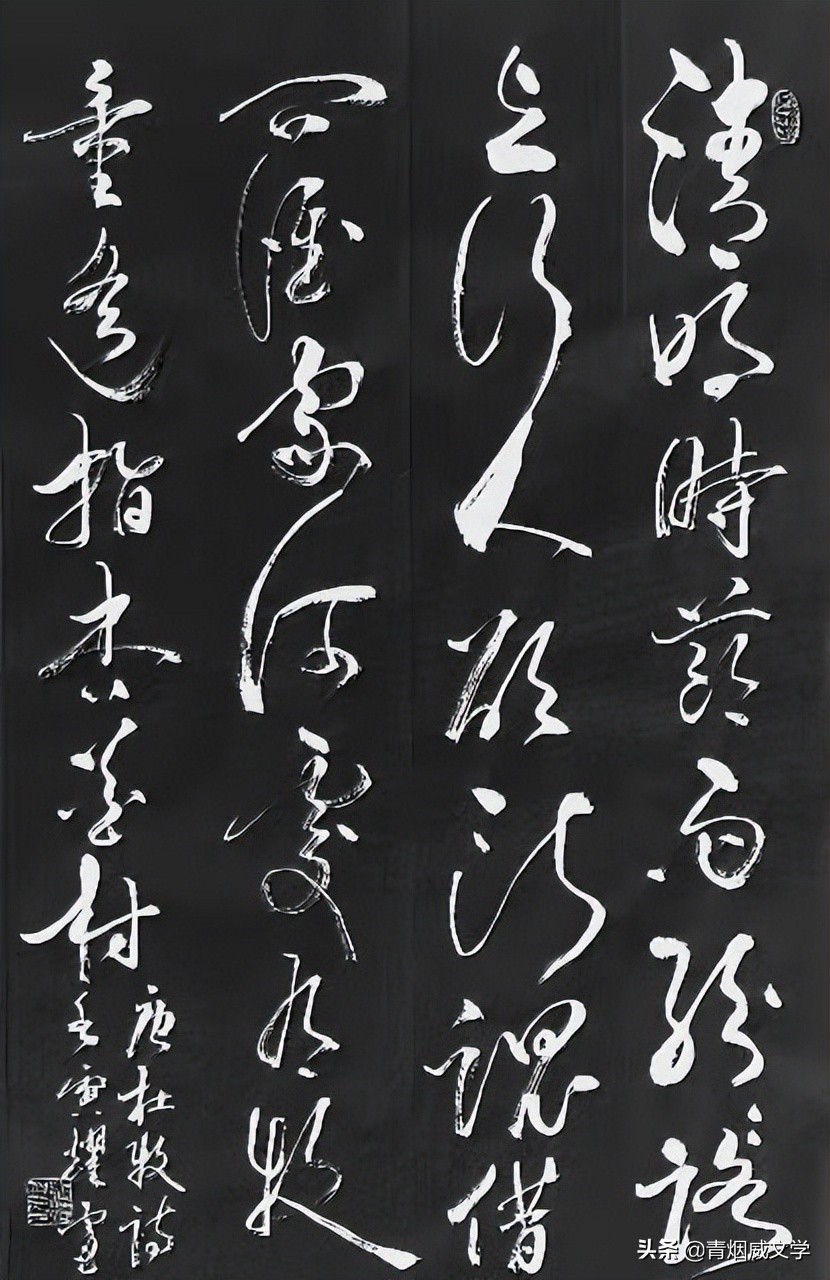 清明時節雨紛〻路
上行人欲断魂借
問酒家何處有牧
童遥指杏花村
唐杜牧詩
壬寅耀
头条 @青烟威文学